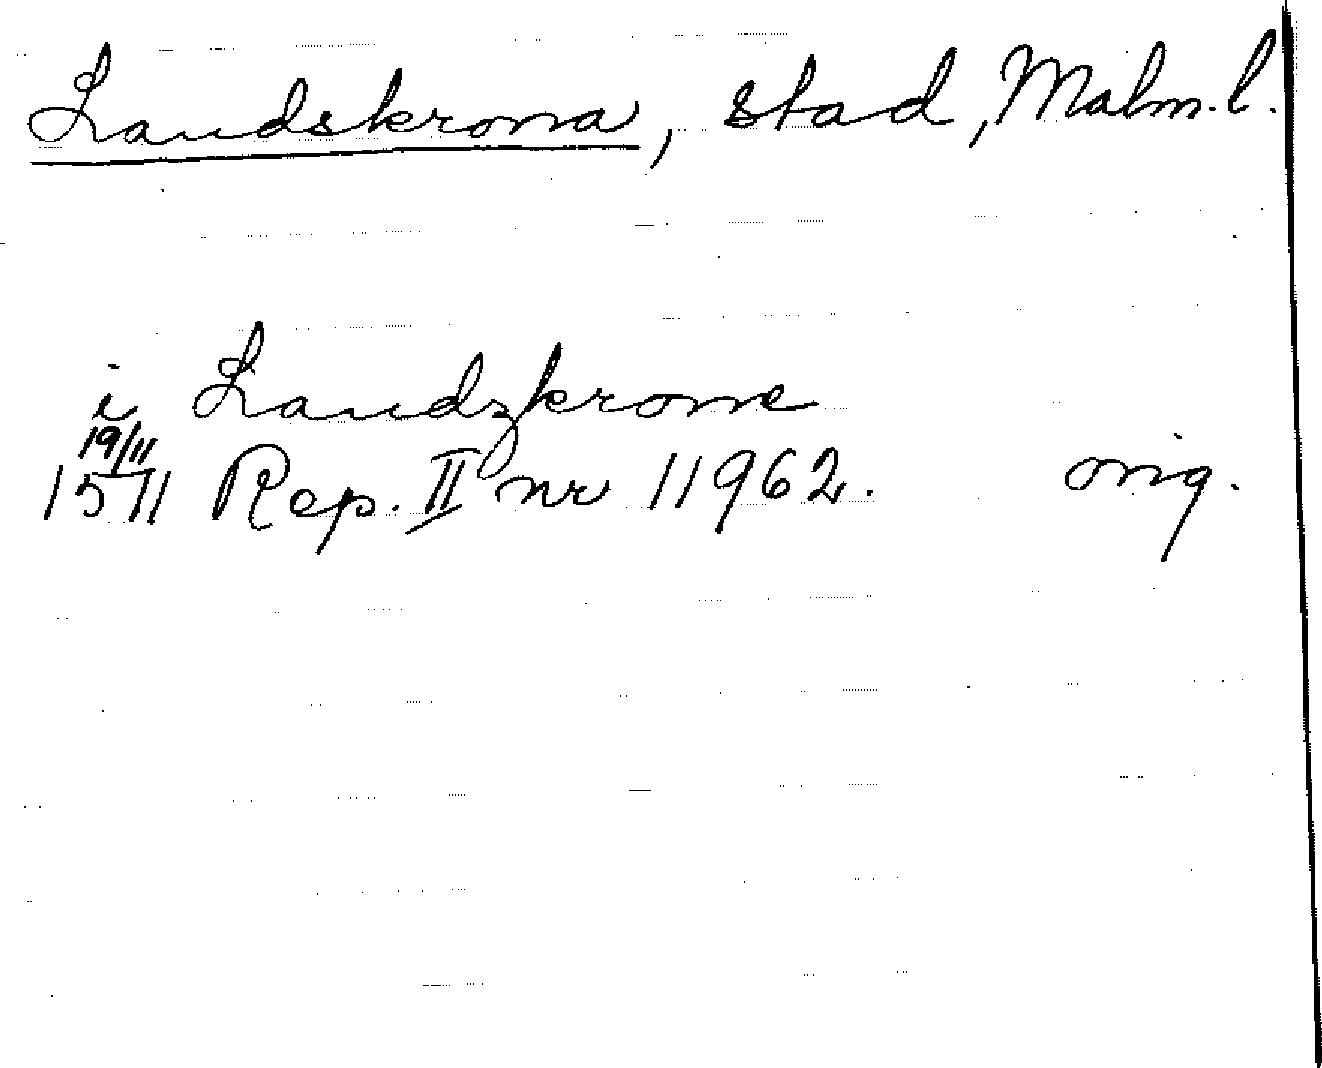 Landskrona, stad, Malm. l.
i Landzkrone
19/11
1511 Rep. II nr 11962. orig.